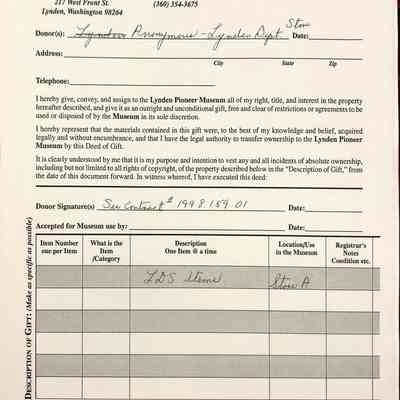 217 West Front St. (360) 354-3675
Lynden, Washington 98264
Donor(s): Anonymous - Lynden Dept. Store Date:
Address:
City State Zip
Telephone:
I hereby give, convey, and assign to the Lynden Pioneer Museum all of my right, title, and interest in the property
hereafter described, and give it as an outright and unconditional gift, free and clear of restrictions or agreements to be
used or disposed of by the Museum in its sole discretion.
I hereby represent that the materials contained in this gift were, to the best of my knowledge and belief, acquired
legally and without encumbrance, and that I have the legal authority to transfer ownership to the Lynden Pioneer
Museum by this Deed of Gift.
It is clearly understood by me that it is my purpose and intention to vest any and all incidents of absolute ownership,
including but not limited to all rights of copyright, of the property described below in the "Description of Gift," from
the date of this document forward. In witness whereof, I have executed this deed:
Donor Signature(s) See Contract # 1998.159.01 Date:
Accepted for Museum use by: Date:
DESCRIPTION OF GIFT: (Make as specific as possible)
Item Number What is the Description Location/Use Registrar's
one per Item Item One Item @ a time in the Museum Notes
/Category Condition etc.
LDS Items Store A